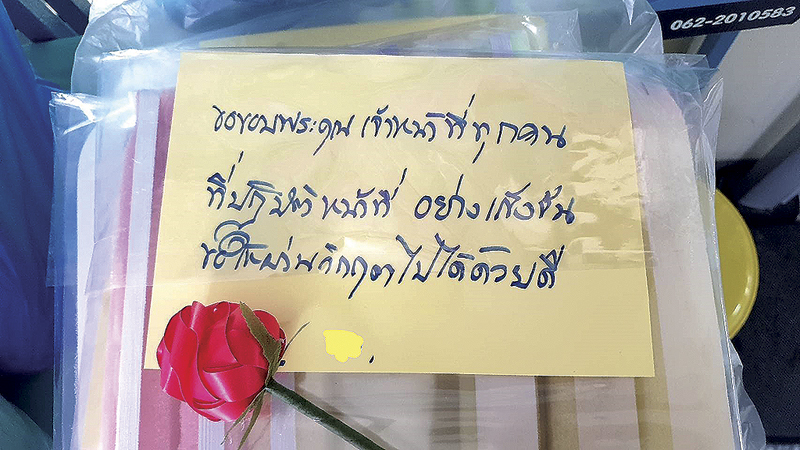 062-2010583
ขอขอบพระคุณ เจ้าหน้าที่ทุกคน
ที่ปฏิบัติหน้าที่ อย่างแข็งขัน
ขอให้ผ่านวิกฤตไปได้ด้วยดี